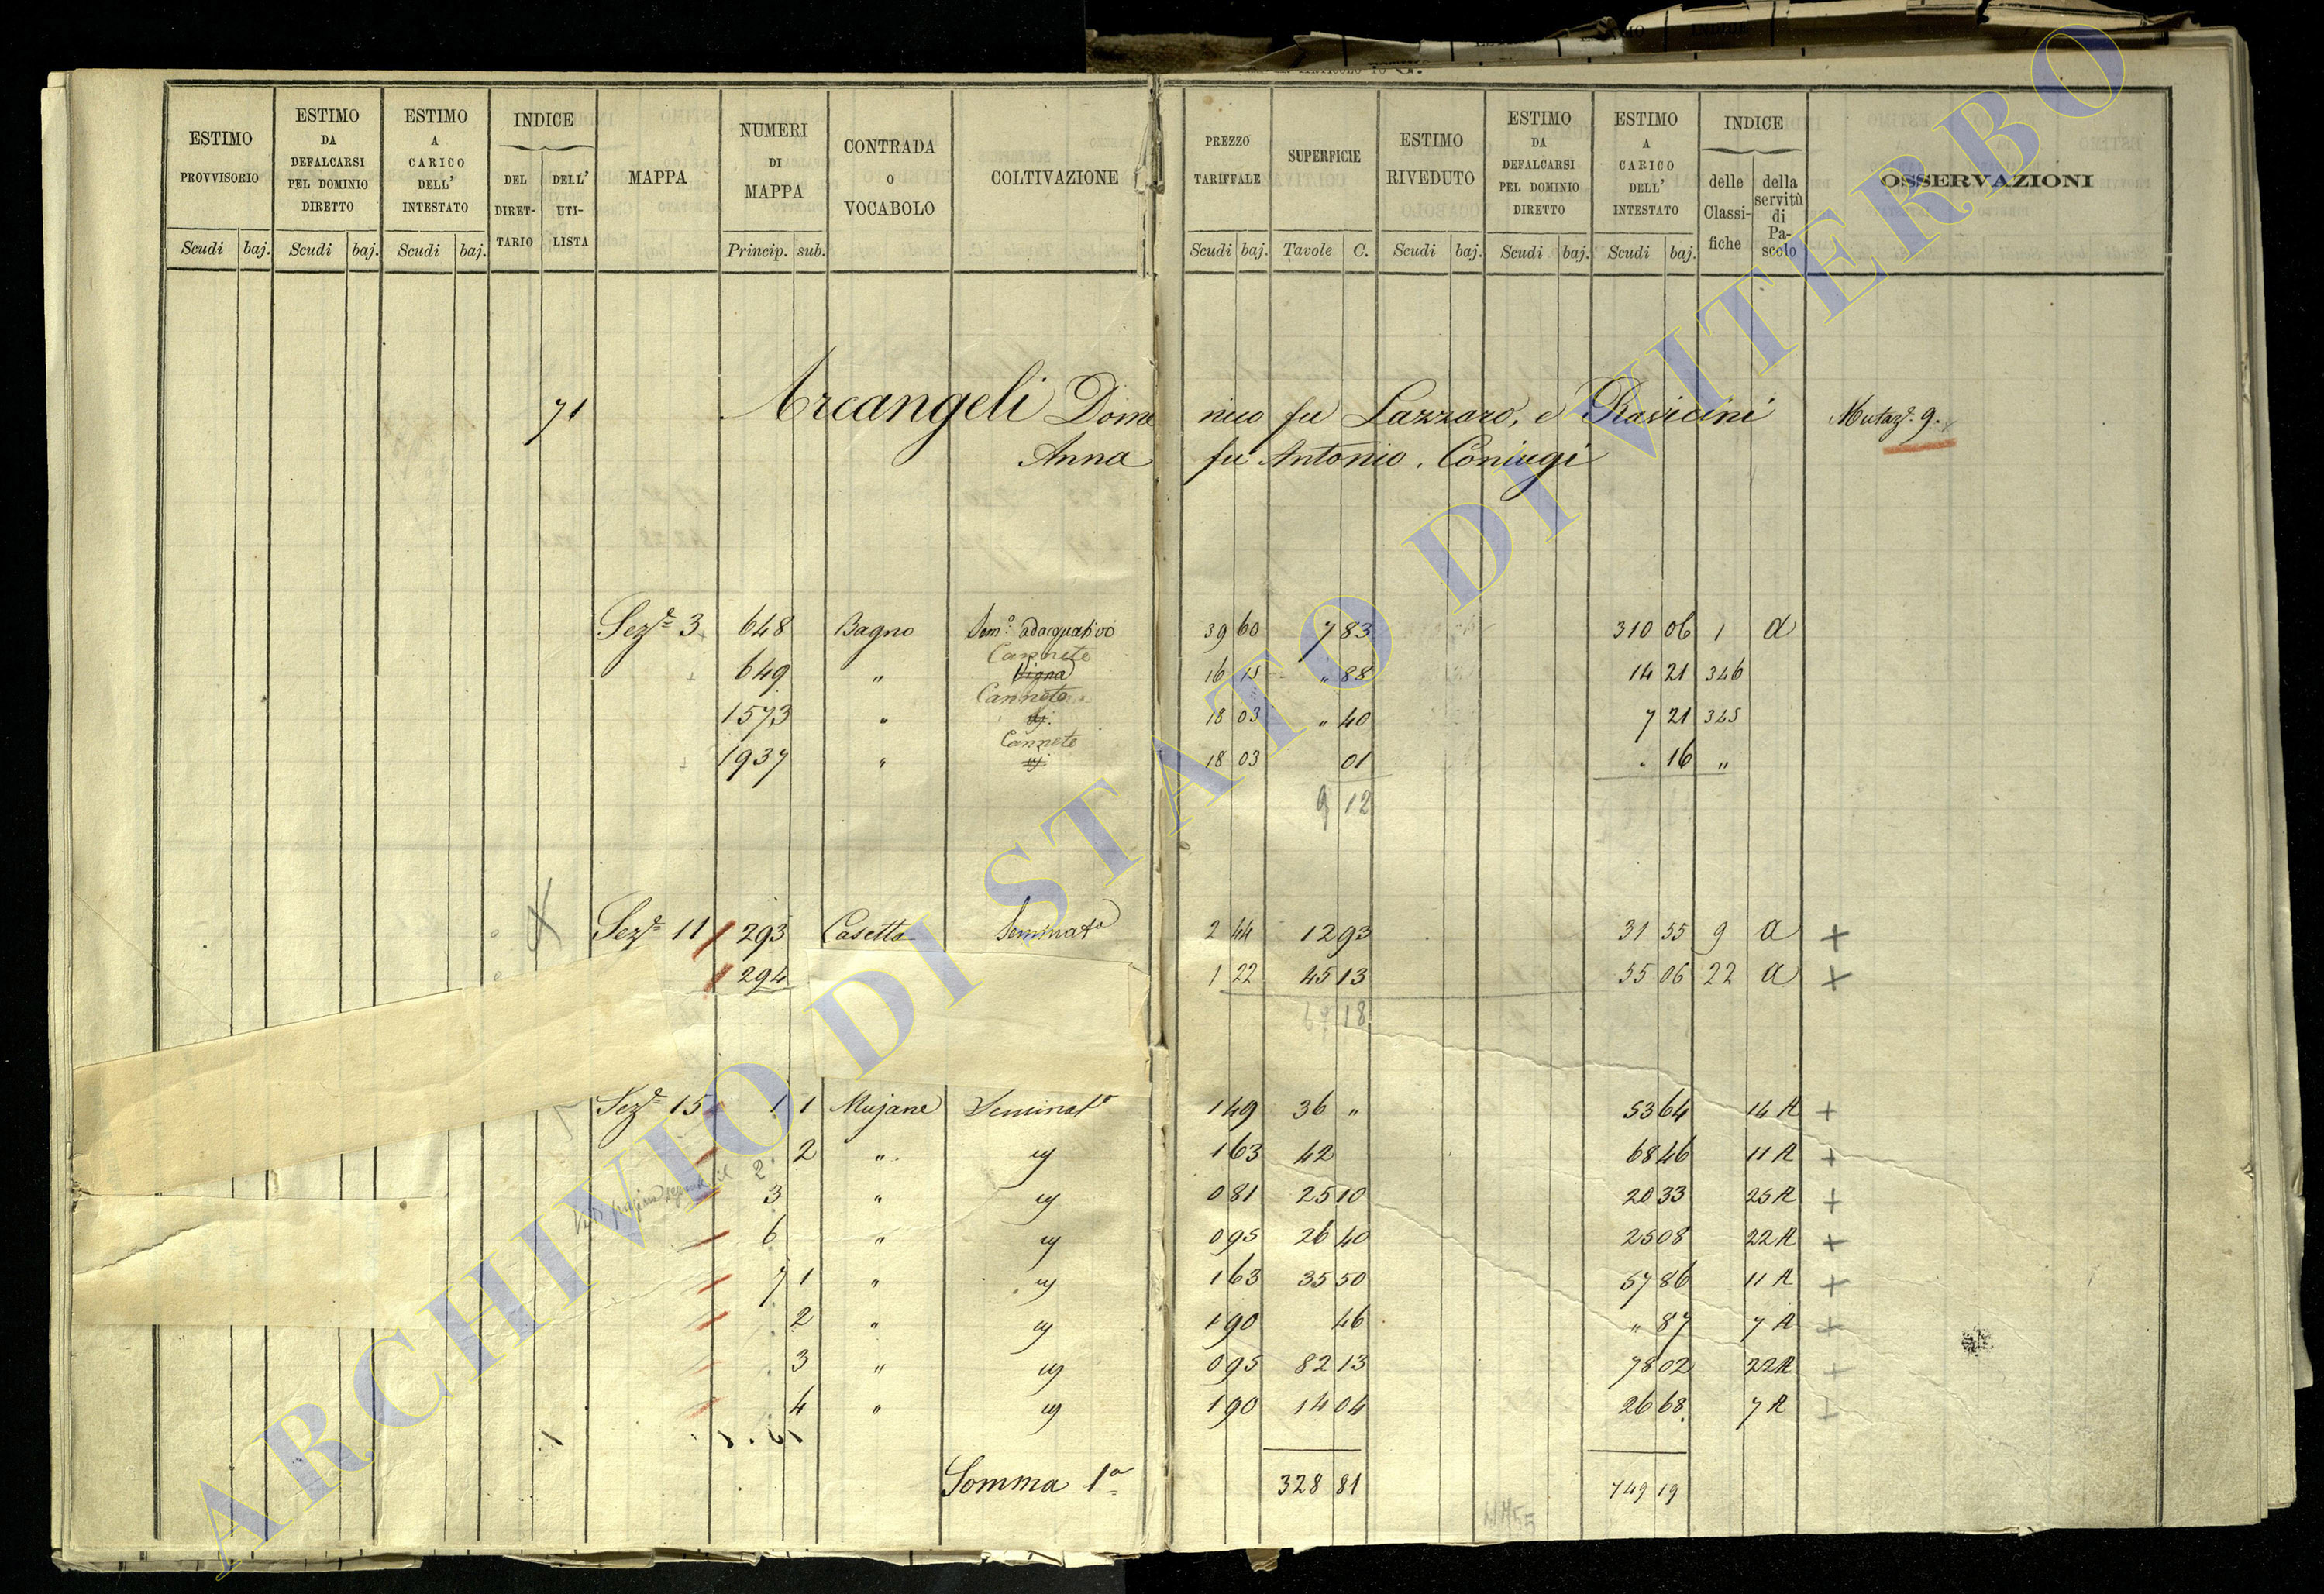 ESTIMO PROVVISORIO | ESTIMO DA DEFALCARSI PEL DOMINIO DIRETTO | ESTIMO A CARICO DELL' INTESTATO | INDICE | MAPPA | NUMERI DI MAPPA | CONTRADA O VOCABOLO | COLTIVAZIONE | PREZZO TARIFFALE | SUPERFICIE | ESTIMO RIVEDUTO | ESTIMO DA DEFALCARSI PEL DOMINIO DIRETTO | ESTIMO A CARICO DELL' INTESTATO | INDICE | OSSERVAZIONI
DEL DIRETTARIO | DELL' UTILISTA | delle Classifiche | della servitù di Pascolo
Scudi | baj. | Scudi | baj. | Scudi | baj. | Princip. | sub. | Scudi | baj. | Tavole | C. | Scudi | baj. | Scudi | baj. | Scudi | baj.
71 Arcangeli Dome nico fu Lazzaro, e Ravicini Mutaz.e 9.
Anna fu Antonio. Coniugi
Sez.e 3 648 Bagno Sem.o adacquativo 39 60 7 83 310 06 1 a
Canneto
649 " Vigna 16 15 " 88 14 21 346
Canneto
1573 " 18 03 " 40 7 21 345
Canneto
1937 " 18 03 01 . 16 "
9 12
Sez.e 11 293 Casetta Seminato 2 44 12 93 31 55 9 a +
294 1 22 45 13 55 06 22 a +
18
Sez.e 15 1 1 Mujane Seminato 1 49 36 " 53 64 14 A +
2 " 1 63 42 68 46 11 A +
3 " 0 81 25 10 20 33 25 A +
6 " 0 95 26 40 25 08 22 A +
7 1 " 1 63 35 50 57 86 11 A +
2 " 1 90 46 " 87 7 A +
3 " 0 95 82 13 78 02 22 A +
4 " 1 90 14 04 26 68 7 A +
Somma 1a 328 81 749 19
ARCHIVIO DI STATO DI VITERBO